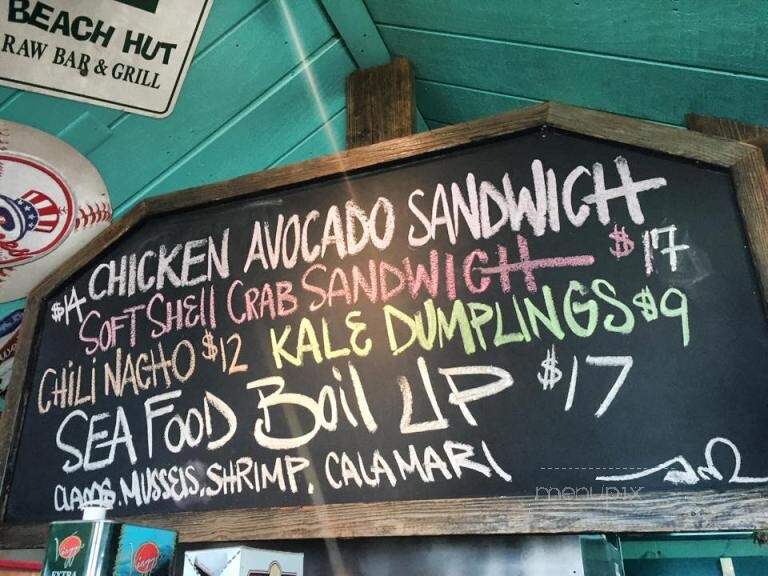 BEACH HUT
RAW BAR & GRILL
$14 CHICKEN AVOCADO SANDWICH
SOFT SHELL CRAB SANDWICH $17
CHILI NACHO $12 KALE DUMPLINGS $9
SEAFOOD BOIL UP $17
CLAMS, MUSSELS, SHRIMP, CALAMARI
menupix
EXTRA